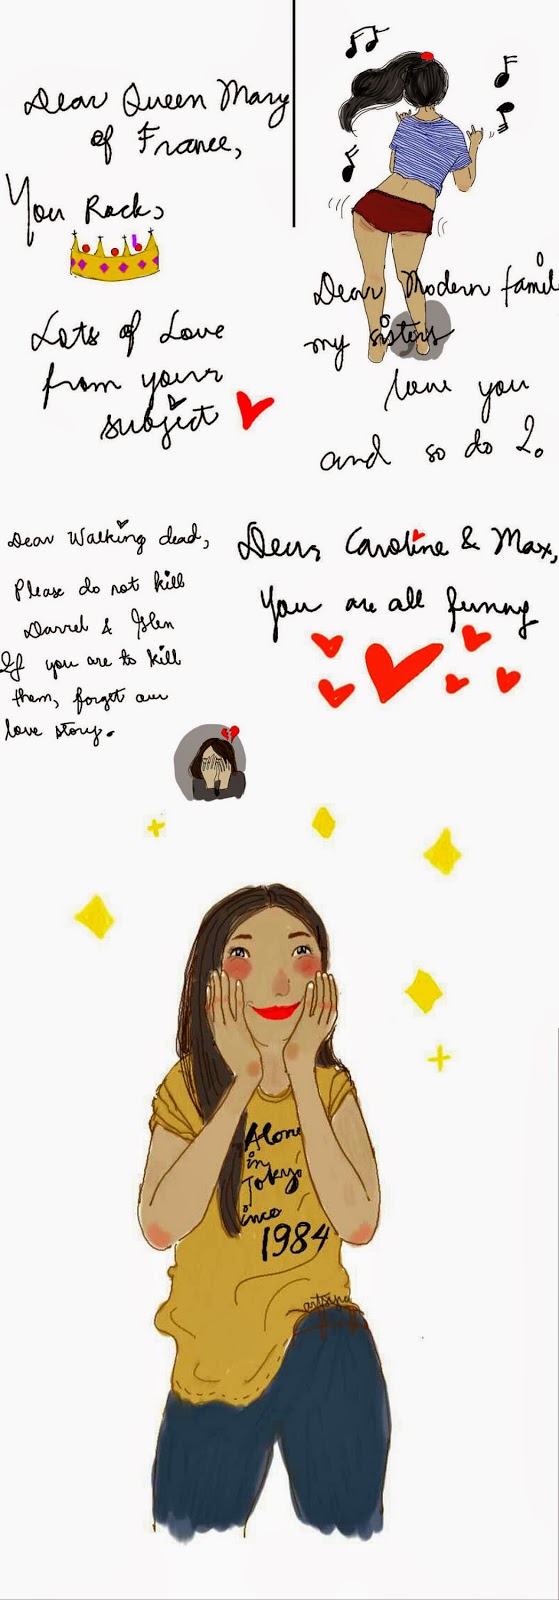 Dear Queen Mary
of France,
You Rock,
Lots of Love
from your
subject
Dear Modern famil
my sisters
love you
and so do I.
Dear Walking dead,
Please do not kill
Darrel & Glen
If you are to kill
them, forget our
love story.
Dear, Caroline & Max,
You are all funny
Alone
in
Tokyo
since
1984